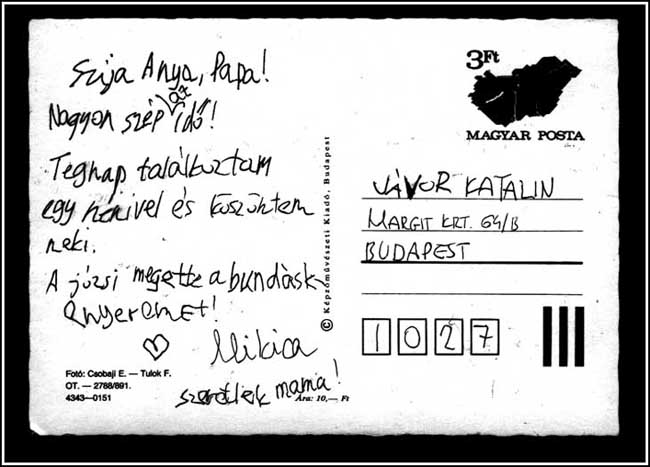 Szija Anya, Papa!
Nagyon szép az idő!
Tegnap találkoztam
egy nénivel és köszöntem
neki.
A józsi megette a bundásk
enyeremet!
Mikica
szeretlek mama!
Fotó: Csobaji E. — Tulok F.
OT. — 2788/891.
4343—0151
Ára: 10,— Ft
© Képzőművészeti Kiadó, Budapest
3Ft
MAGYAR POSTA
JÁVOR KATALIN
MARGIT KRT. 64/B
BUDAPEST
1027